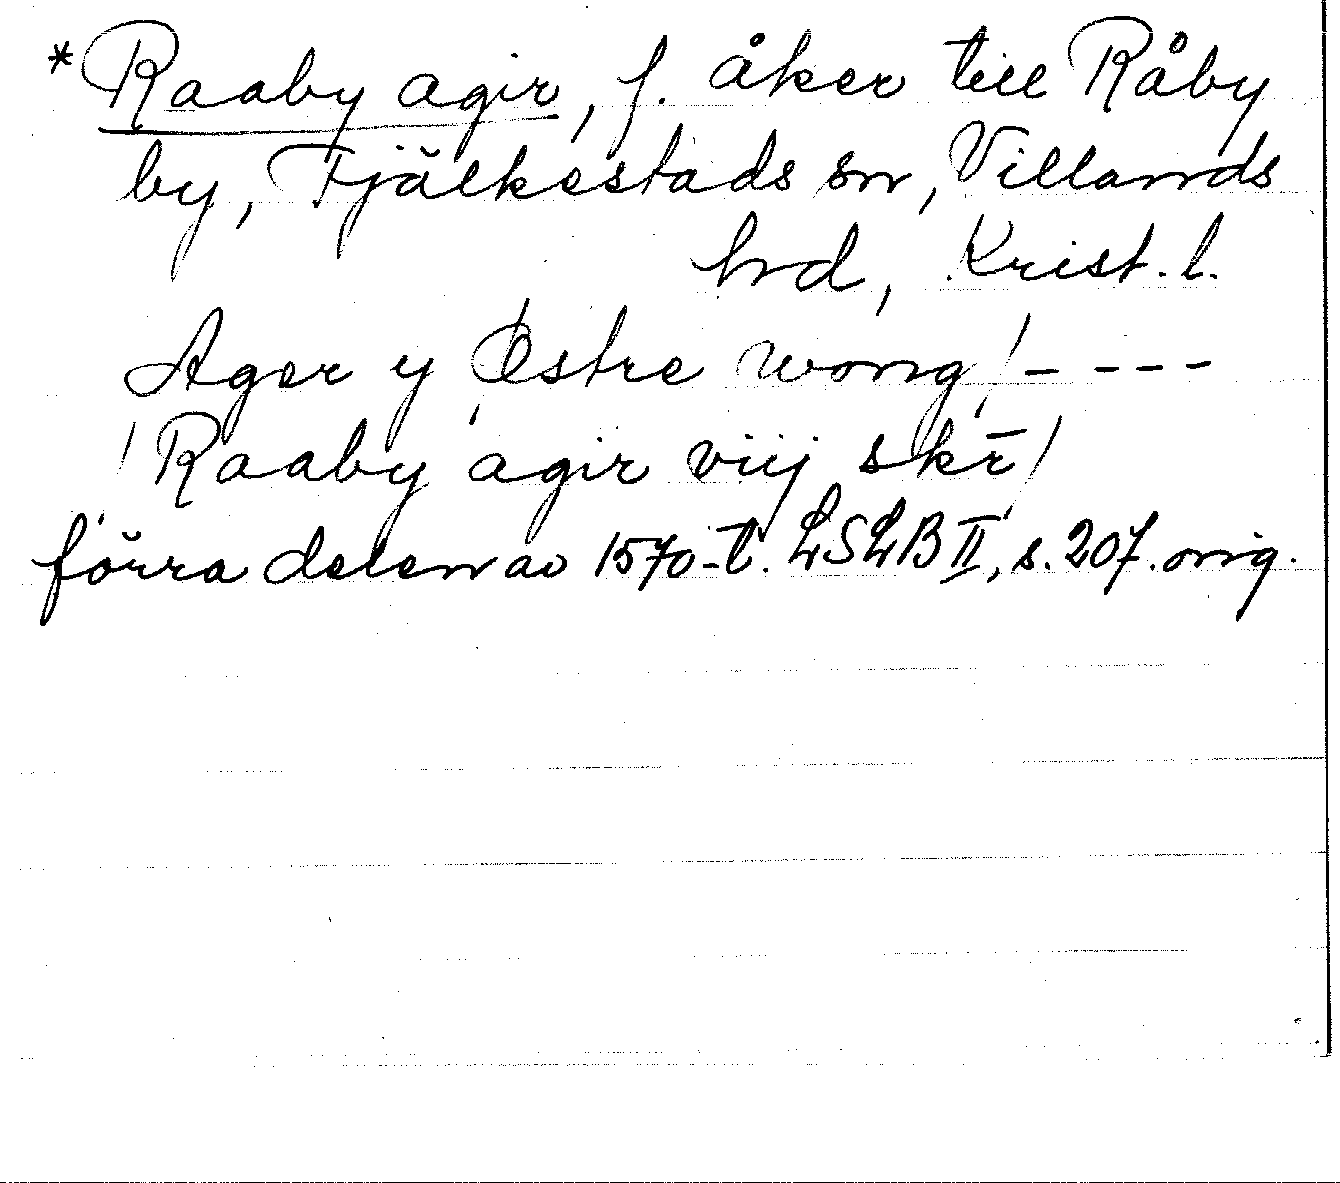 *Raaby agir, f. åker till Råby
by, Fjälkestads sn, Villands
hrd, Krist. l.
Ager y Østre wong! - - - -
! Raaby agir viij skr̄!
förra delen av 1570-t. LSLB II, s. 207. orig.